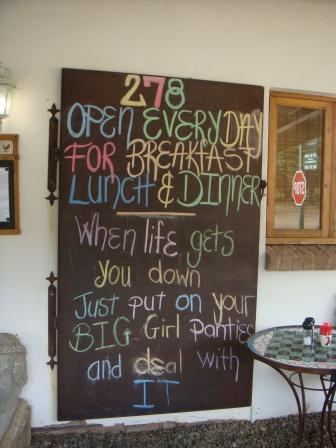 278
OPEN EVERYDAY
FOR BREAKFAST
LUNCH & DINNER
When life gets
you down
Just put on your
BIG Girl Panties
and deal with
IT
STOP